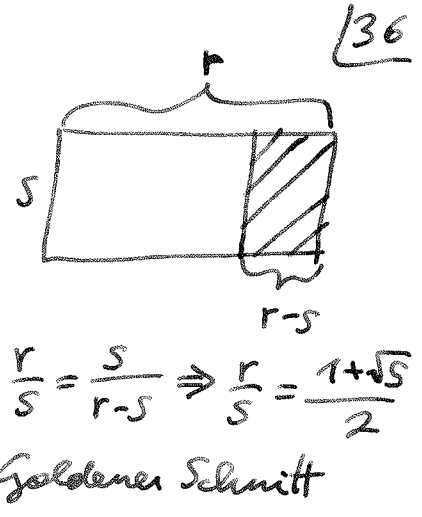 36
r
s
r-s
r/s = s/(r-s) ⇒ r/s = (1+√5)/2
Goldener Schnitt